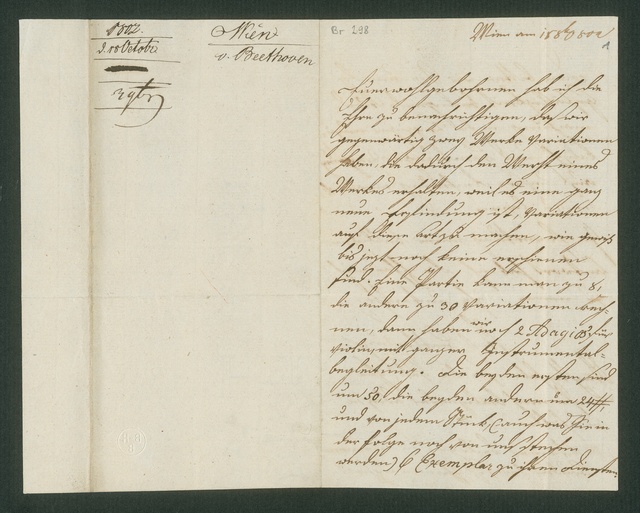 1802.
d. 18 Octobr
Wien
v. Beethoven
Br 298
Wien am 18 8br 802
1
Euer wohlgebohrnen hab ich die
Ehre zu benachrichtigen, daß wir
gegenwärtig zwey Werke Variationen
haben, die dadurch den Werth eines
Werkes erhalten, weil es eine ganz
neue Erfindung ist, Variationen
auf diese art zu machen, wie gewiß
bis jezt noch keine erschienen
sind. Eine Partie kann man zu 8,
die andere zu 30 Variationen rech-
nen, dann haben wir noch 2 Adagios für
Violin, mit ganzer Instrumental-
begleitung. Die beyden ersten sind
um 50, die beyden andern um 24 #,
und von jedem Stück (auch was Sie in
der folge noch von uns stechen
werden) 6 Exemplar zu ihren Diensten